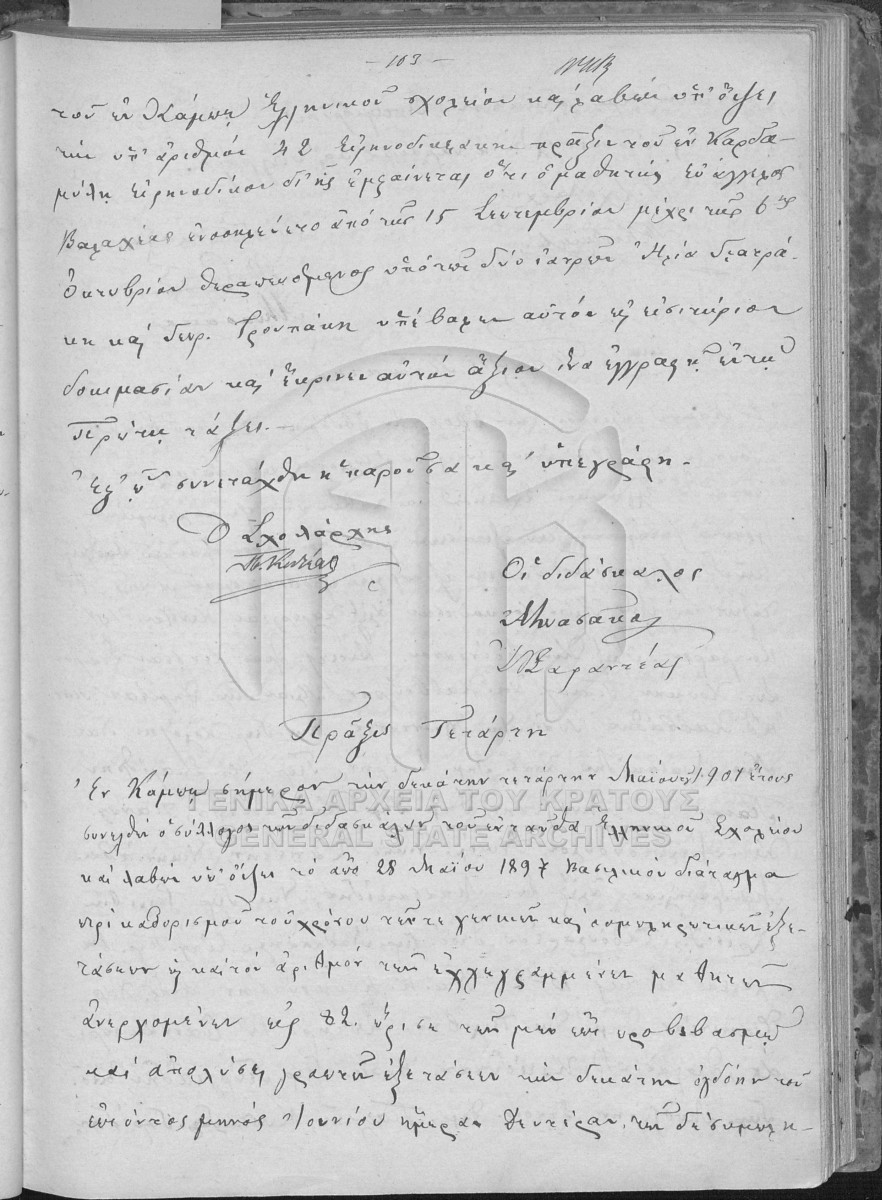 - 103 -
τοῦ ἐν Κάμπῳ Ἑλληνικοῦ σχολείου καὶ λαβὼν ὑπ' ὄψει
τὴν ὑπ' ἀριθμὸν 42 εἰρηνοδικειακὴν πρᾶξιν τοῦ ἐν Καρδα-
μύλῃ εἰρηνοδίκου δι' ἧς ἐμφαίνεται ὅτι ὁ μαθητὴς Εὐάγγελος
Βαλαχέας ἐνοσηλεύετο ἀπὸ τῆς 15 Σεπτεμβρίου μέχρι τῆς 6ης
Ὀκτωβρίου θεραπευόμενος ὑπὸ τῶν δύο ἰατρῶν Ἠλία Γιατρά-
κη καὶ Δεορ. Τρουπάκη ὑπέβαλεν αὐτὸν εἰς εἰσιτήριον
δοκιμασίαν καὶ ἔκρινεν αὐτὸν ἄξιον ἵνα ἐγγραφῇ ἐν τῇ
Πρώτῃ τάξει. -
Ἐφ' ᾧ συνετάχθη ἡ παροῦσα καὶ ὑπεγράφη -
Ὁ Σχολάρχης
Οἱ διδάσκαλος
Σαραντέας
Πρᾶξις Τετάρτη
Ἐν Κάμπῳ σήμερον τὴν δεκάτην τετάρτην Μαΐου 1901 ἔτους
ΓΕΝΙΚΑ ΑΡΧΕΙΑ ΤΟΥ ΚΡΑΤΟΥΣ
συνελθὼν ὁ σύλλογος τῶν διδασκάλων τοῦ ἐνταῦθα Ἑλληνικοῦ Σχολείου
GENERAL STATE ARCHIVES
καὶ λαβὼν ὑπ' ὄψει τὸ ἀπὸ 28 Μαΐου 1897 Βασιλικὸν Διάταγμα
περὶ καθορισμοῦ τοῦ χρόνου τῶν τε γενικῶν καὶ συμπληρωτικῶν ἐξε-
τάσεων ὡς καὶ τὸν ἀριθμὸν τῶν ἐγγεγραμμένων μαθητῶν
ἀνερχομένων εἰς 82. ὥρισε τῶν μὲν ἐπὶ προβιβασμῷ
καὶ ἀπολύσει γραπτῶν ἐξετάσεων τὴν δεκάτην ὀγδόην τοῦ
ἐπιόντος μηνὸς Ἰουνίου ἡμέραν Δευτέραν, τῶν δὲ συμπλη-